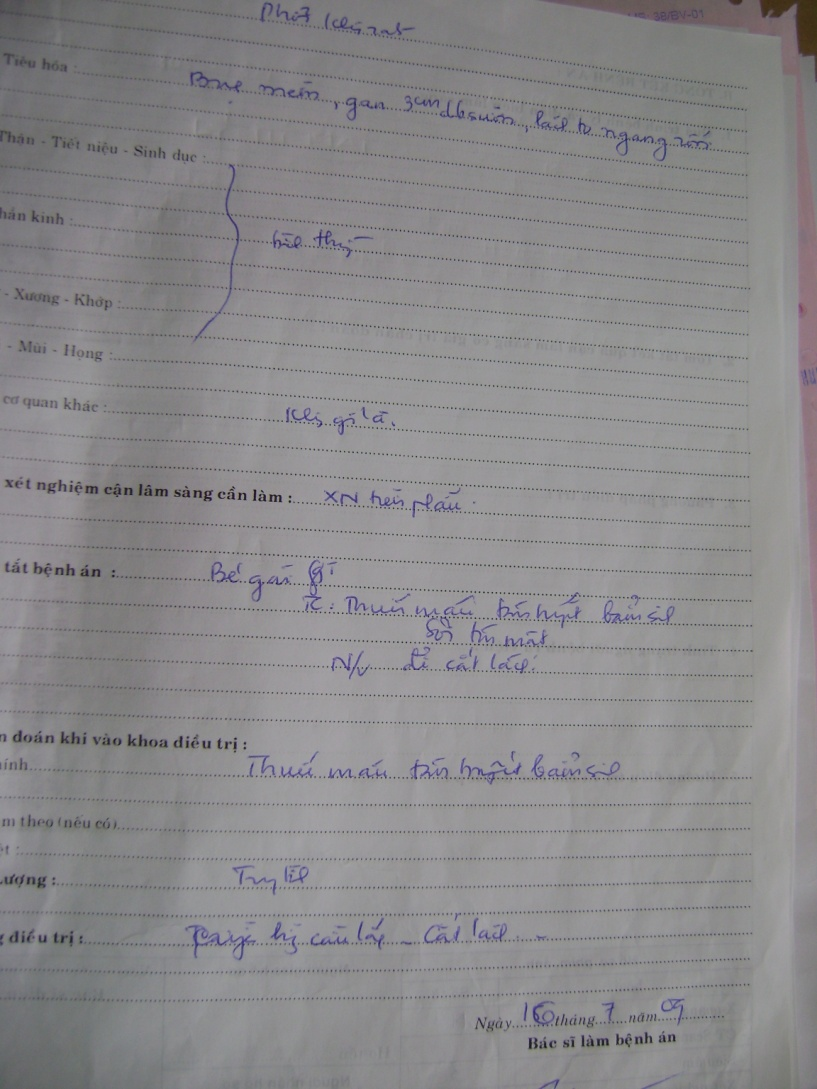 38/BV-01
Phổi
Tiêu hóa : Bụng mềm, gan 3cm dbsườn, lách to ngang rốn
Thận - Tiết niệu - Sinh dục :
hần kinh : bth
- Xương - Khớp :
- Mũi - Họng :
cơ quan khác : gì lạ.
xét nghiệm cận lâm sàng cần làm : XN tiền phẫu
tắt bệnh án : Bé gái
TC : Thiếu máu tán huyết bẩm sinh
Sỏi túi mật
N/v để cắt lách
n đoán khi vào khoa điều trị :
hính Thiếu máu tán huyết bẩm sinh
m theo (nếu có)
ệt :
lượng :
g điều trị : hồng cầu lắng - Cắt lách
Ngày 16 tháng 7 năm 09
Bác sĩ làm bệnh án